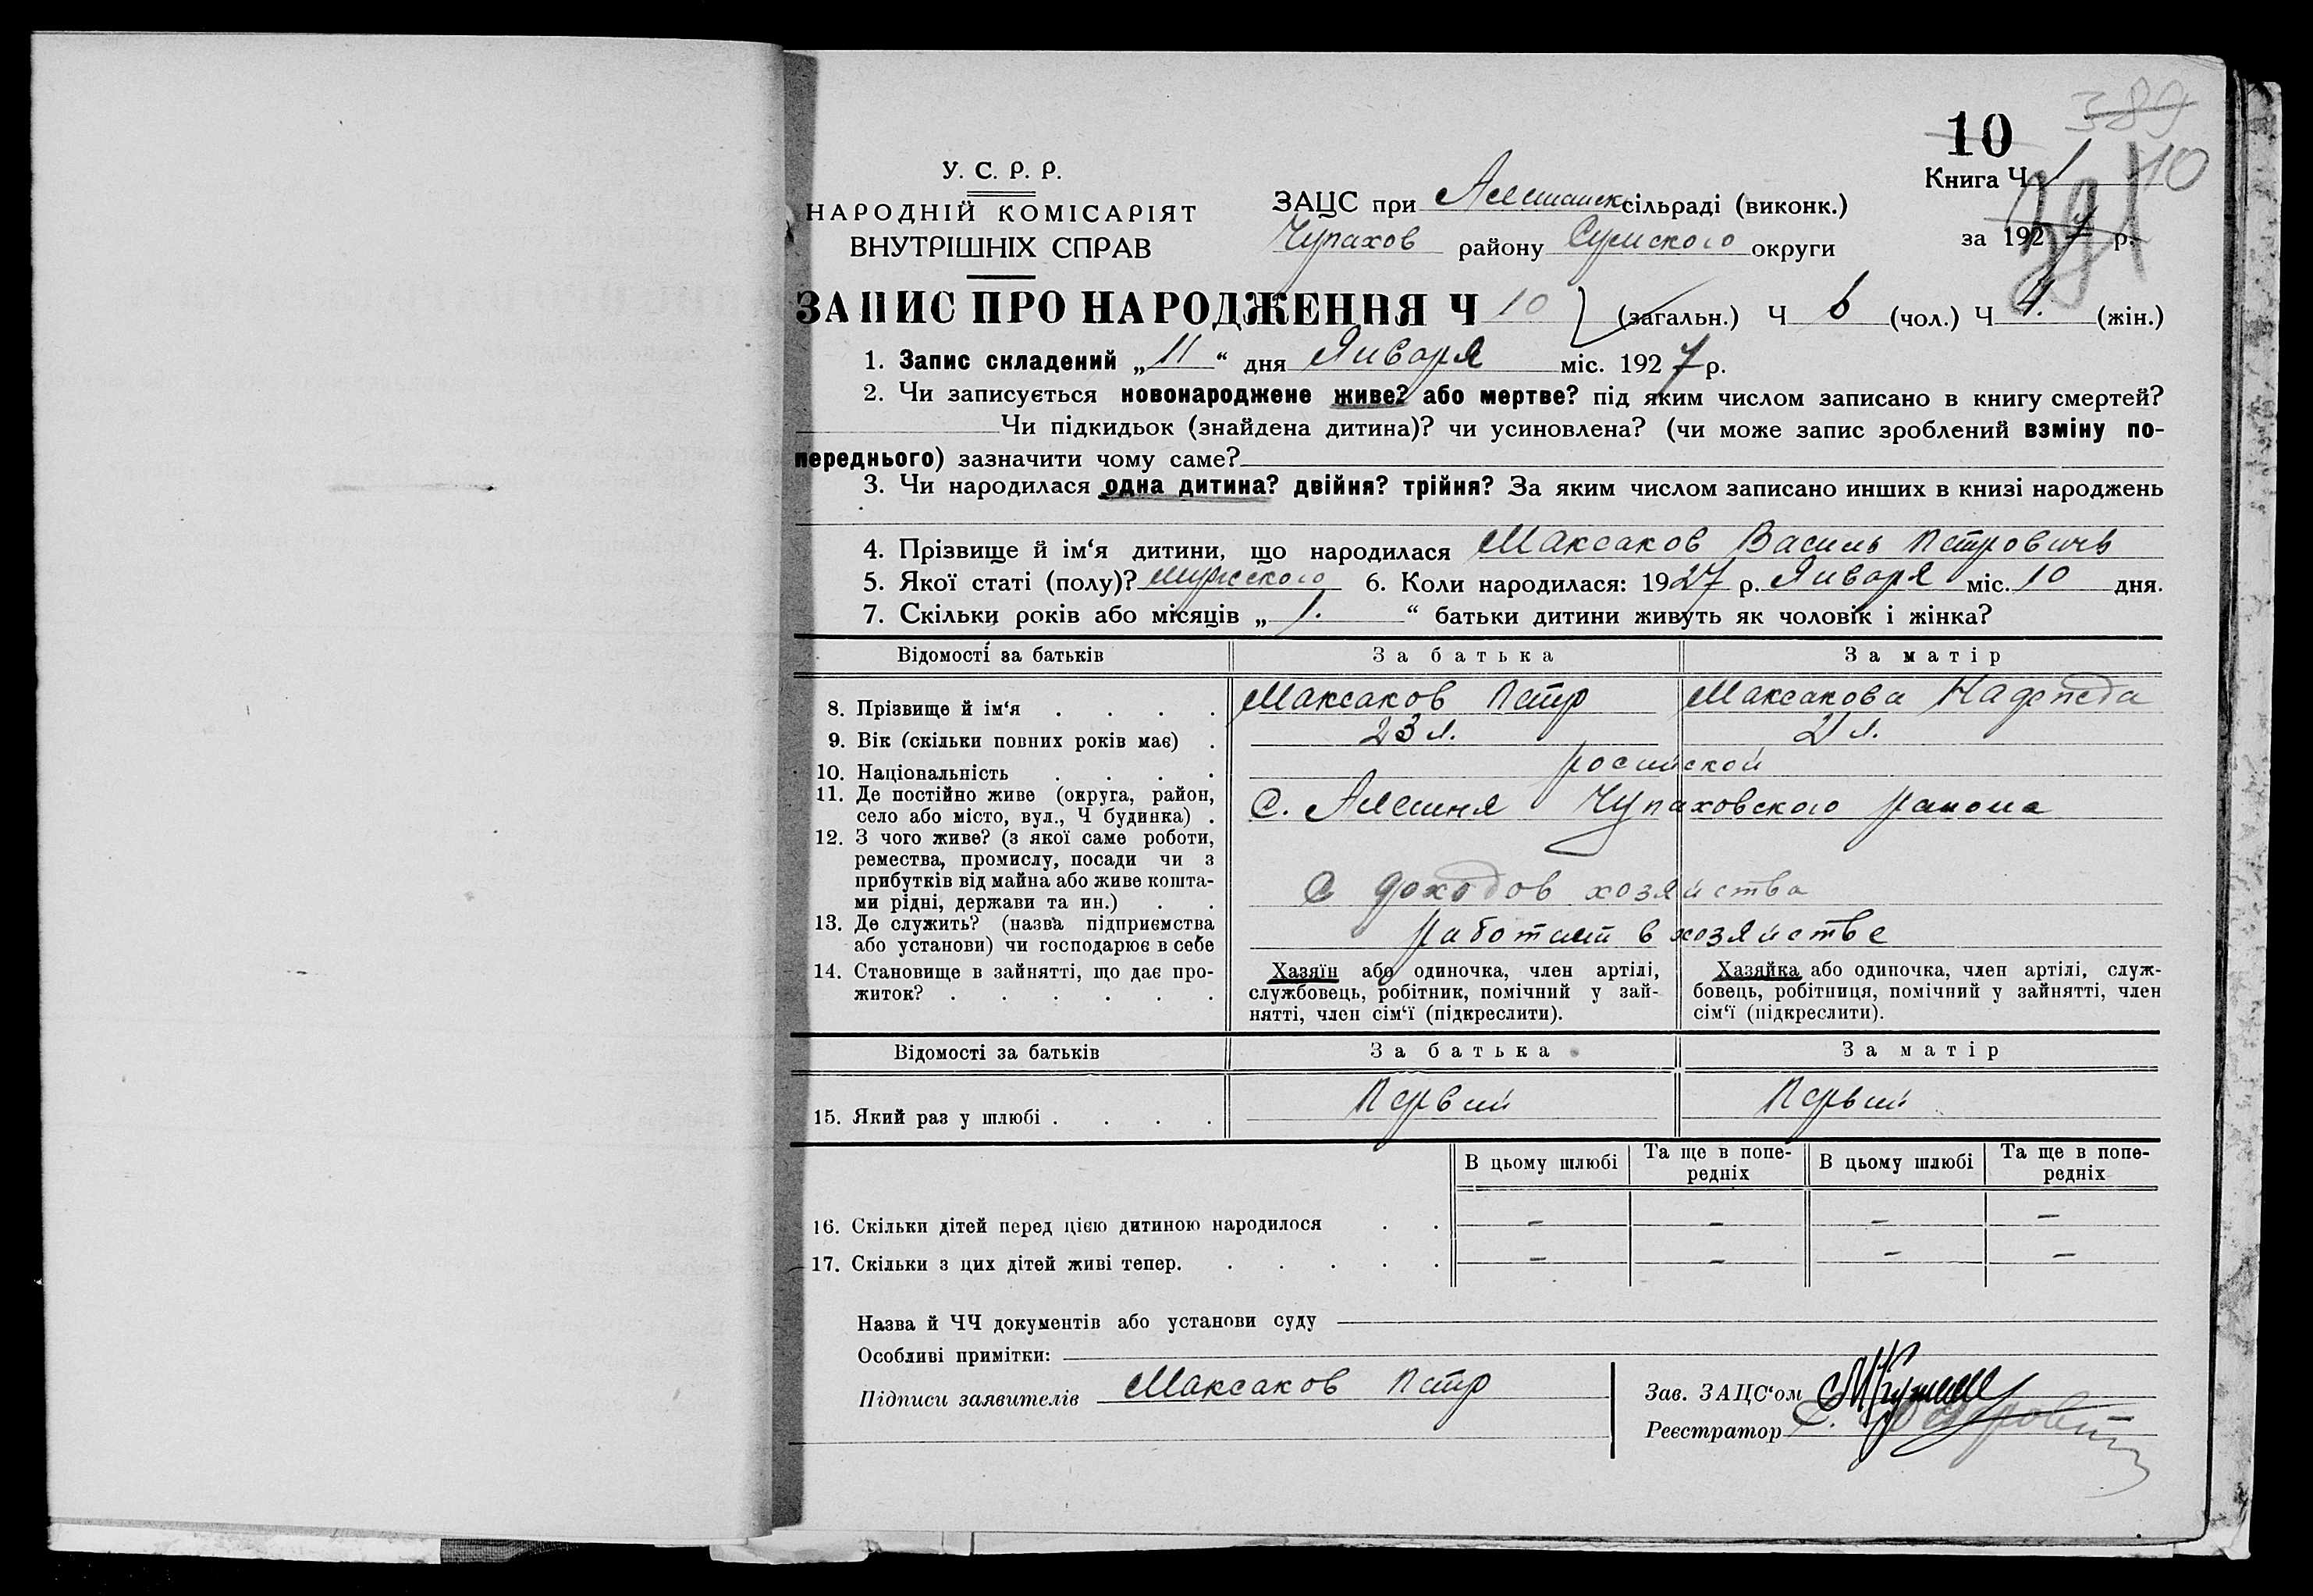 10
389
391
10
У. С. Р. Р.
НАРОДНІЙ КОМІСАРІЯТ
ВНУТРІШНІХ СПРАВ
Книга Ч 1
за 1927 р.
ЗАЦС при Алешанск сільраді (виконк.)
Чупахов району Сумского округи
ЗАПИС ПРО НАРОДЖЕННЯ Ч 10 (загальн.) Ч 6 (чол.) Ч 4. (жін.)
1. Запис складений „11“ дня Января міс. 1927 р.
2. Чи записується новонароджене живе? або мертве? під яким числом записано в книгу смертей?
Чи підкидьок (знайдена дитина)? чи усиновлена? (чи може запис зроблений взміну по-
переднього) зазначити чому саме?
3. Чи народилася одна дитина? двійня? трійня? За яким числом записано инших в книзі народжень
4. Прізвище й ім‘я дитини, що народилася Максаков Василь Петровичь
5. Якої статі (полу)? мужского 6. Коли народилася: 1927 р. Января міс. 10 дня.
7. Скільки років або місяців „1.“ батьки дитини живуть як чоловік і жінка?
Відомості за батьків За батька За матір
8. Прізвище й ім‘я . . . . Максаков Петр Максакова Надежда
9. Вік (скільки повних років має) . 23 л. 21 л.
10. Національність . . . . росийской
11. Де постійно живе (округа, район,
село або місто, вул., Ч будинка) . С. Алешня Чупаховского района
12. З чого живе? (з якої саме роботи,
ремества, промислу, посади чи з
прибутків від майна або живе кошта-
ми рідні, держави та ин.) . . С доходов хозяйства
13. Де служить? (назва підприємства
або установи) чи господарює в себе работает в хозяйстве
14. Становище в зайнятті, що дає про-
житок? . . . . . .
Хазяїн або одиночка, член артілі,
службовець, робітник, помічний у зай-
нятті, член сім‘ї (підкреслити).
Хазяйка або одиночка, член артілі, служ-
бовець, робітниця, помічний у зайнятті, член
сім‘ї (підкреслити).
Відомості за батьків За батька За матір
15. Який раз у шлюбі . . . . Первый Первый
В цьому шлюбі Та ще в попе-
редніх В цьому шлюбі Та ще в попе-
редніх
16. Скільки дітей перед цією дитиною народилося . . – – – –
17. Скільки з цих дітей живі тепер. . . . . . – – – –
Назва й ЧЧ документів або установи суду
Особливі примітки:
Підписи заявителів Максаков Петр
Зав. ЗАЦС‘ом
Реєстратор